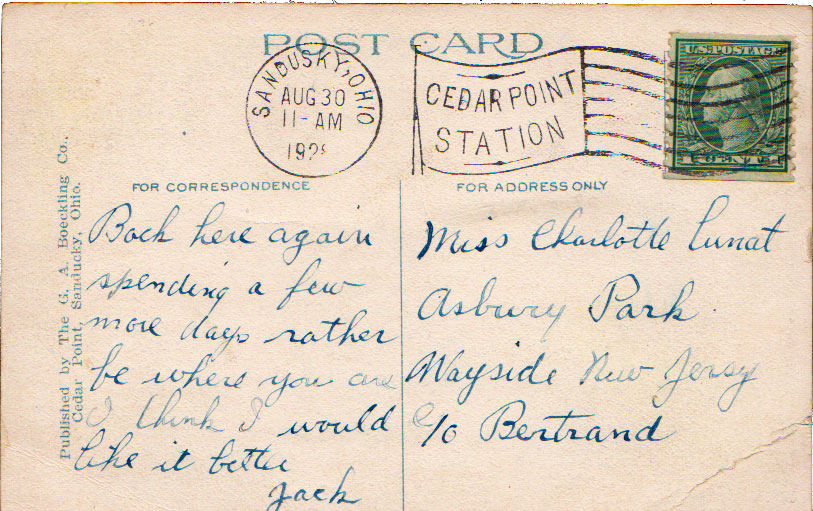 POST CARD
SANDUSKY, OHIO
AUG 30
11-AM
CEDAR POINT
STATION
U.S. POSTAGE
1 CENT 1
FOR CORRESPONDENCE
Back here again
spending a few
more days rather
be where you are
I think I would
like it better
Jack
FOR ADDRESS ONLY
Miss Charlotte
Asbury Park
Wayside New Jersey
c/o Bertrand
Published by The G. A. Boeckling Co.,
Cedar Point, Sandusky, Ohio.